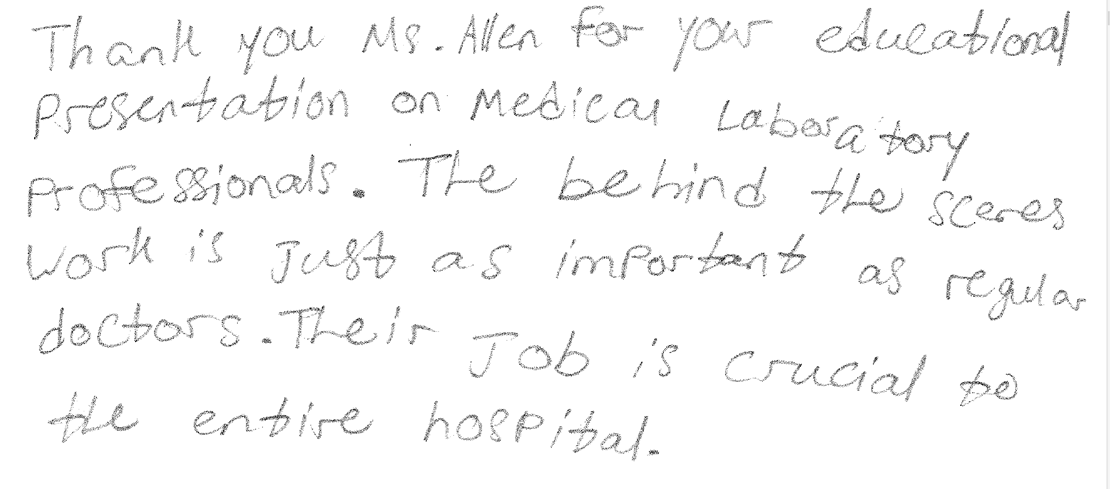 Thank you Ms. Allen for your educational
Presentation on Medical Laboratory
Professionals. The behind the scenes
Work is Just as important as regular
doctors. Their Job is crucial to
the entire hospital.